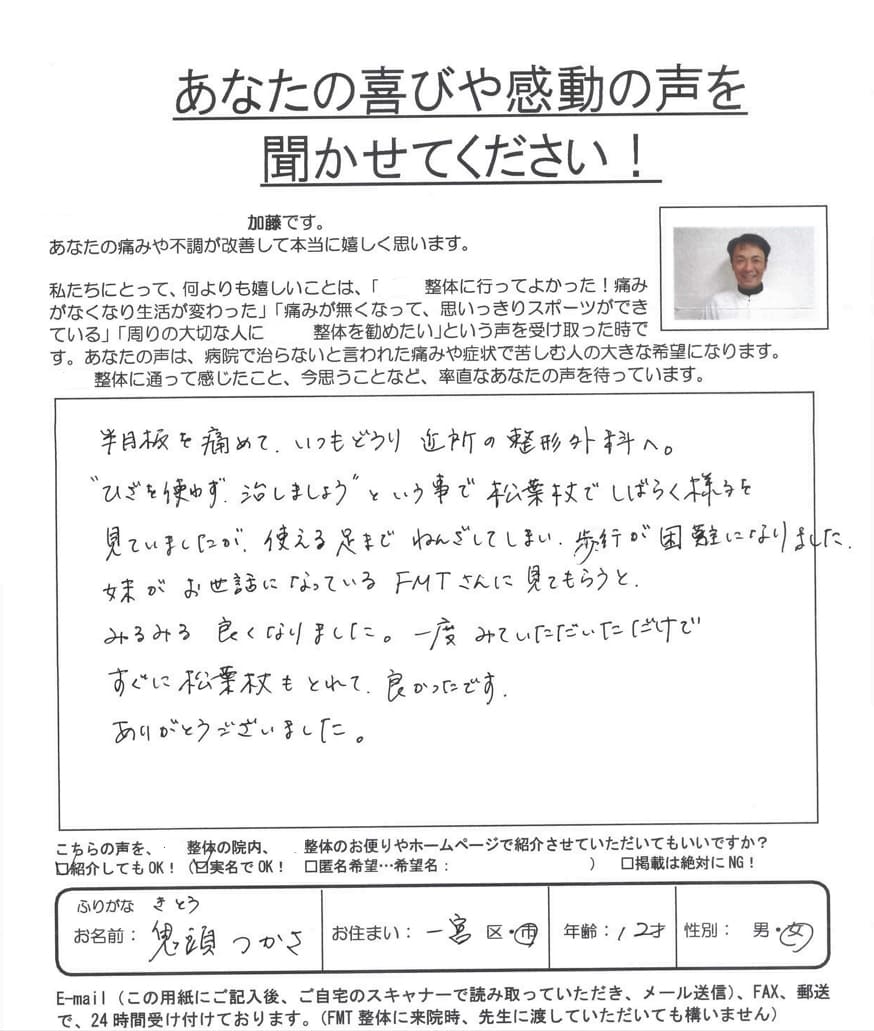 あなたの喜びや感動の声を
聞かせてください！
加藤です。
あなたの痛みや不調が改善して本当に嬉しく思います。
私たちにとって、何よりも嬉しいことは、「　　整体に行ってよかった！痛み
がなくなり生活が変わった」「痛みが無くなって、思いっきりスポーツができ
ている」「周りの大切な人に　　整体を勧めたい」という声を受け取った時で
す。あなたの声は、病院で治らないと言われた痛みや症状で苦しむ人の大きな希望になります。
整体に通って感じたこと、今思うことなど、率直なあなたの声を待っています。
半月板を痛めて、いつもどうり近所の整形外科へ。
"ひざを使わず、治しましょう"という事で松葉杖でしばらく様子を
見ていましたが、使える足までねんざしてしまい、歩行が困難になりました、
妹がお世話になっているFMTさんに見てもらうと、
みるみる良くなりました。一度みていただいただけで
すぐに松葉杖もとれて、良かったです。
ありがとうございました。
こちらの声を、　整体の院内、　整体のお便りやホームページで紹介させていただいてもいいですか？
☐紹介してもOK！（☑実名でOK！　☐匿名希望…希望名：　　　）　☐掲載は絶対にNG！
ふりがな　きとう
お名前：鬼頭つかさ　お住まい：一宮 区・市　年齢：12才　性別：男・女
E-mail（この用紙にご記入後、ご自宅のスキャナーで読み取っていただき、メール送信）、FAX、郵送
で、24時間受け付けております。（FMT整体に来院時、先生に渡していただいても構いません）